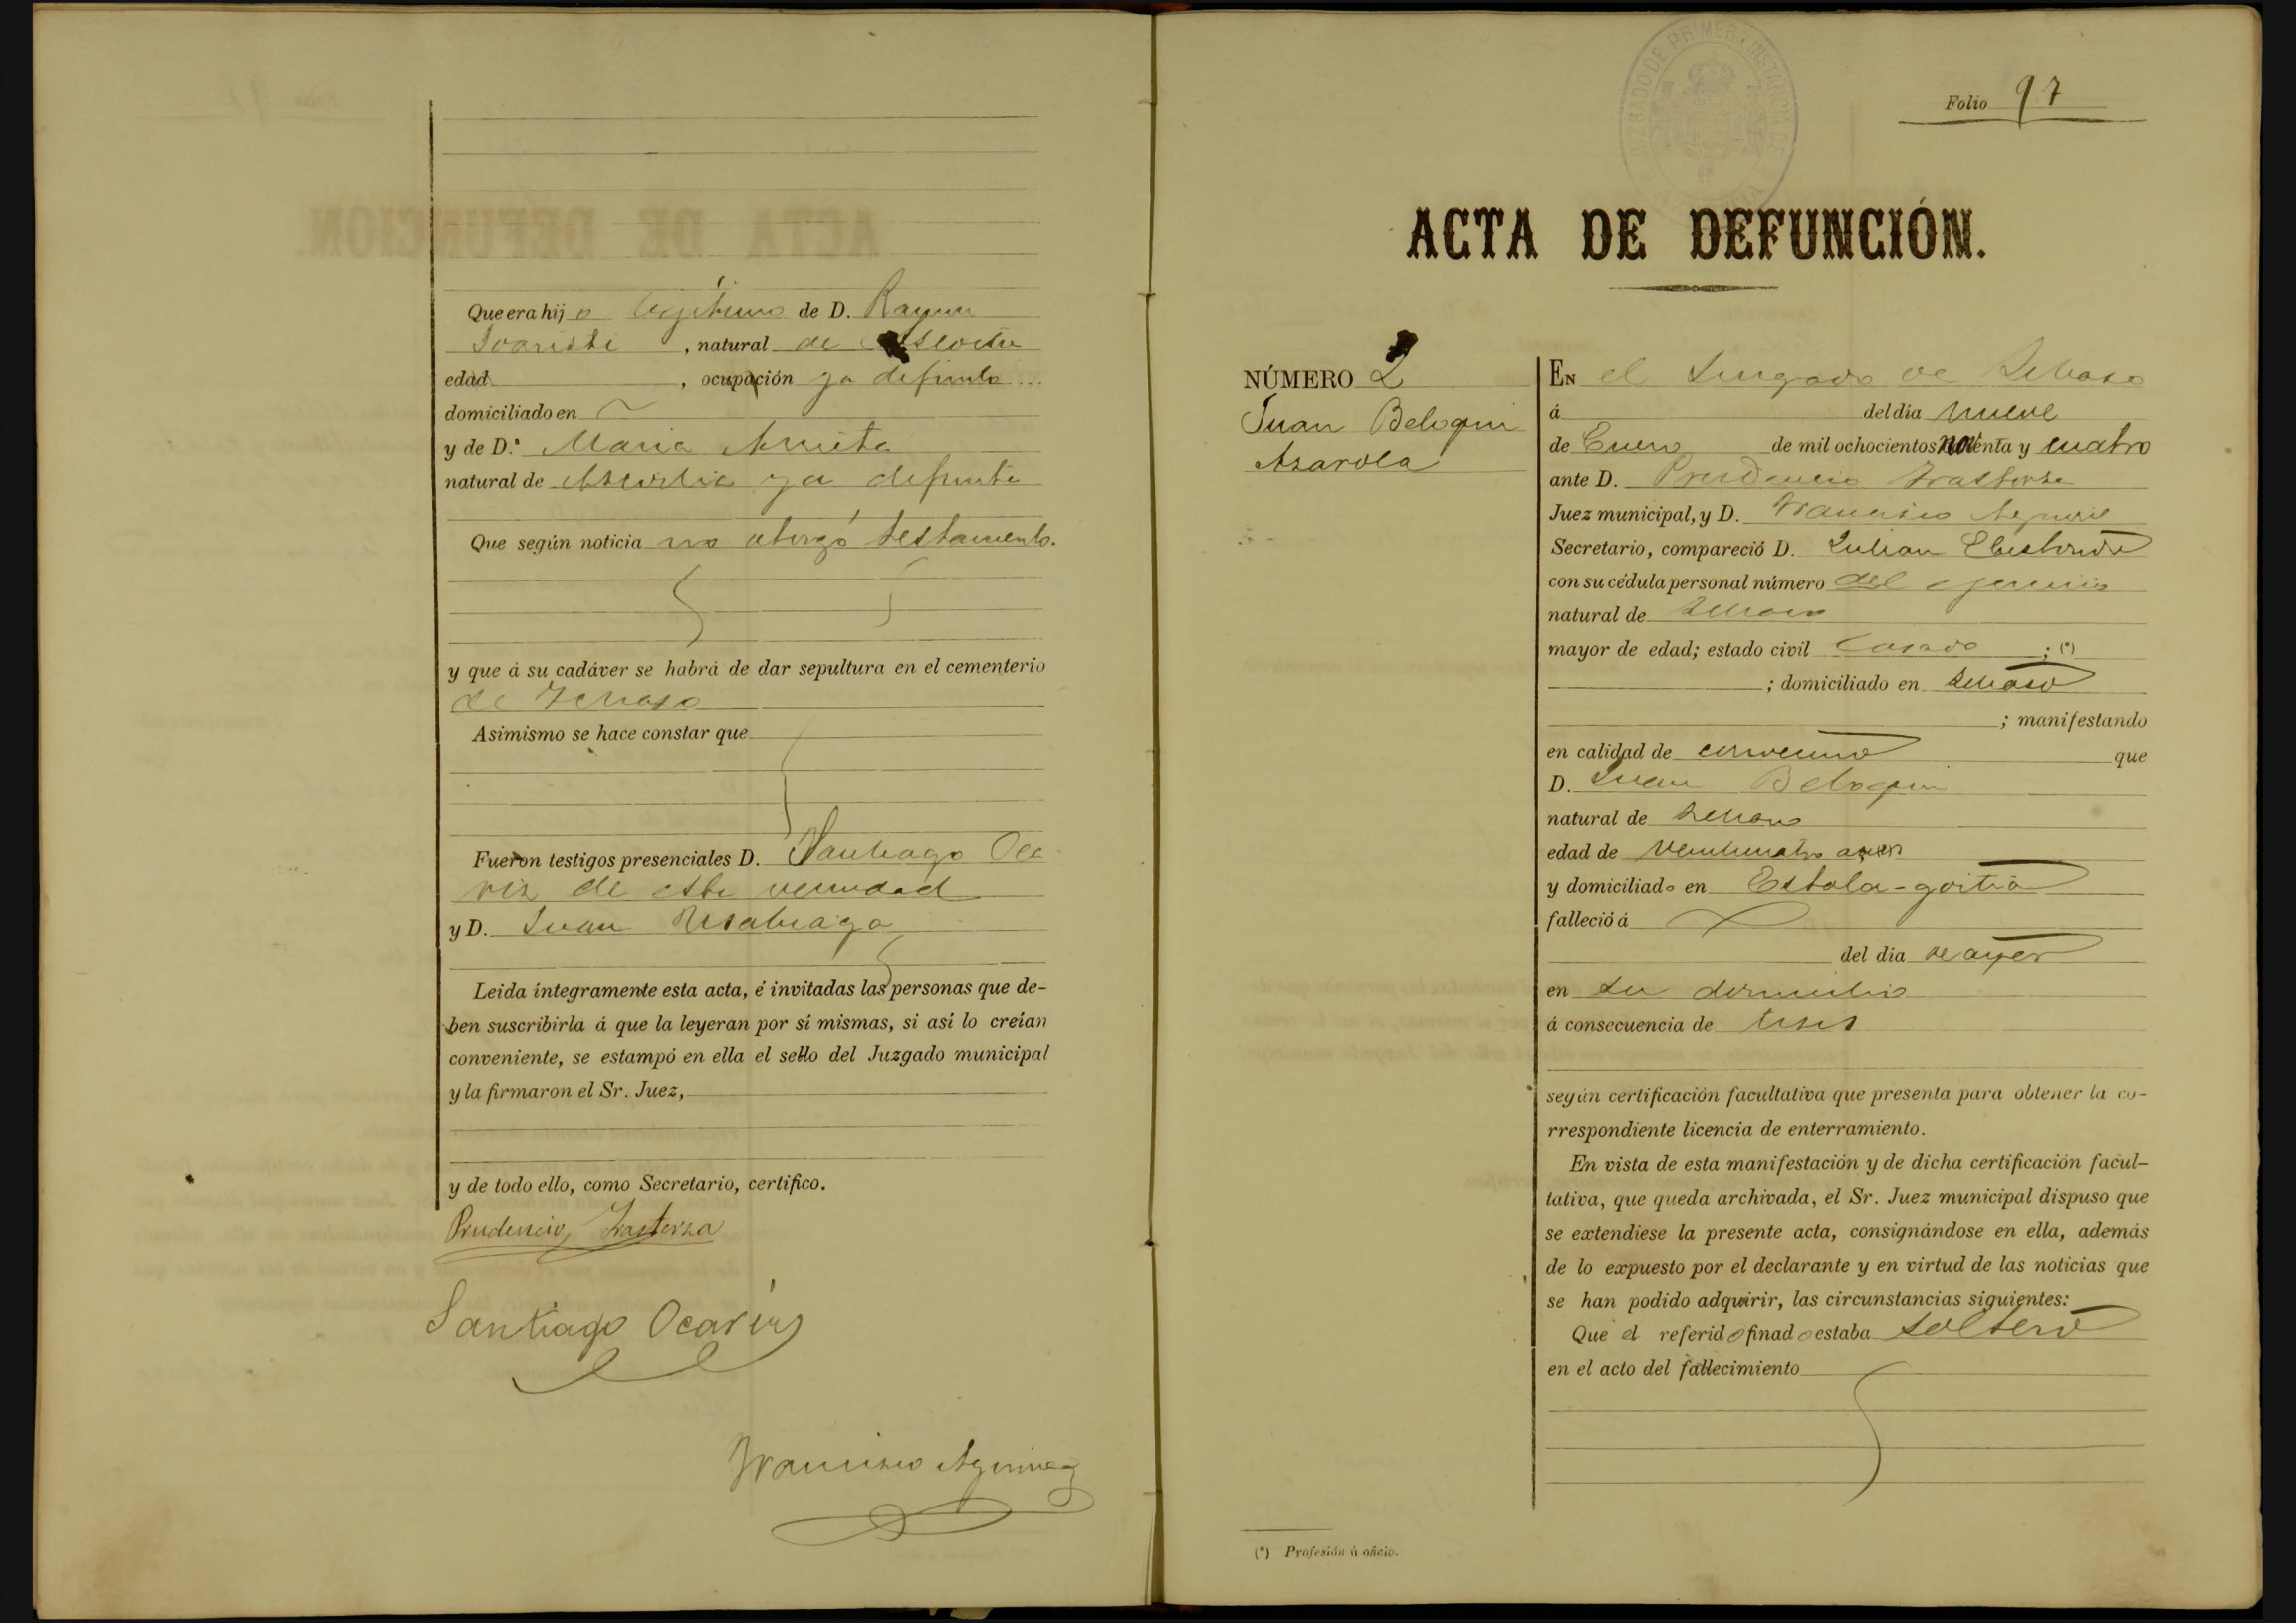 Que era hijo legítimo de D. Ramon
, natural de
edad , ocupación ya difunto
domiciliado en
y de D.ª Maria Arrieta
natural de ya difunta
Que según noticia no otorgó testamento.
y que á su cadáver se habrá de dar sepultura en el cementerio
de
Asimismo se hace constar que
Fueron testigos presenciales D. Santiago Oca
riz de esta vecindad
y D. Juan Usabiaga
Leida íntegramente esta acta, é invitadas las personas que de-
ben suscribirla á que la leyeran por sí mismas, si así lo creían
conveniente, se estampó en ella el sello del Juzgado municipal
y la firmaron el Sr. Juez,
y de todo ello, como Secretario, certifico.
Prudencio Irastorza
Santiago Ocariz
Francisco
JUZGADO DE PRIMERA INSTANCIA DE
Folio 97
ACTA DE DEFUNCIÓN.
NÚMERO 2
Juan Beloqui
Azarola
EN el Juzgado de
á del día nueve
de Enero de mil ochocientos noventa y cuatro
ante D. Prudencio Irastorza
Juez municipal, y D. Francisco
Secretario, compareció D. Julian
con su cédula personal número del
natural de
mayor de edad; estado civil Casado ; (*)
; domiciliado en
; manifestando
en calidad de convecino que
D. Juan Beloqui
natural de
edad de veinticuatro años
y domiciliado en Estala-goitia
falleció á
del día de ayer
en su domicilio
á consecuencia de tisis
según certificación facultativa que presenta para obtener la co-
rrespondiente licencia de enterramiento.
En vista de esta manifestación y de dicha certificación facul-
tativa, que queda archivada, el Sr. Juez municipal dispuso que
se extendiese la presente acta, consignándose en ella, además
de lo expuesto por el declarante y en virtud de las noticias que
se han podido adquirir, las circunstancias siguientes:
Que el referido finado estaba soltero
en el acto del fallecimiento
(*) Profesión ú oficio.